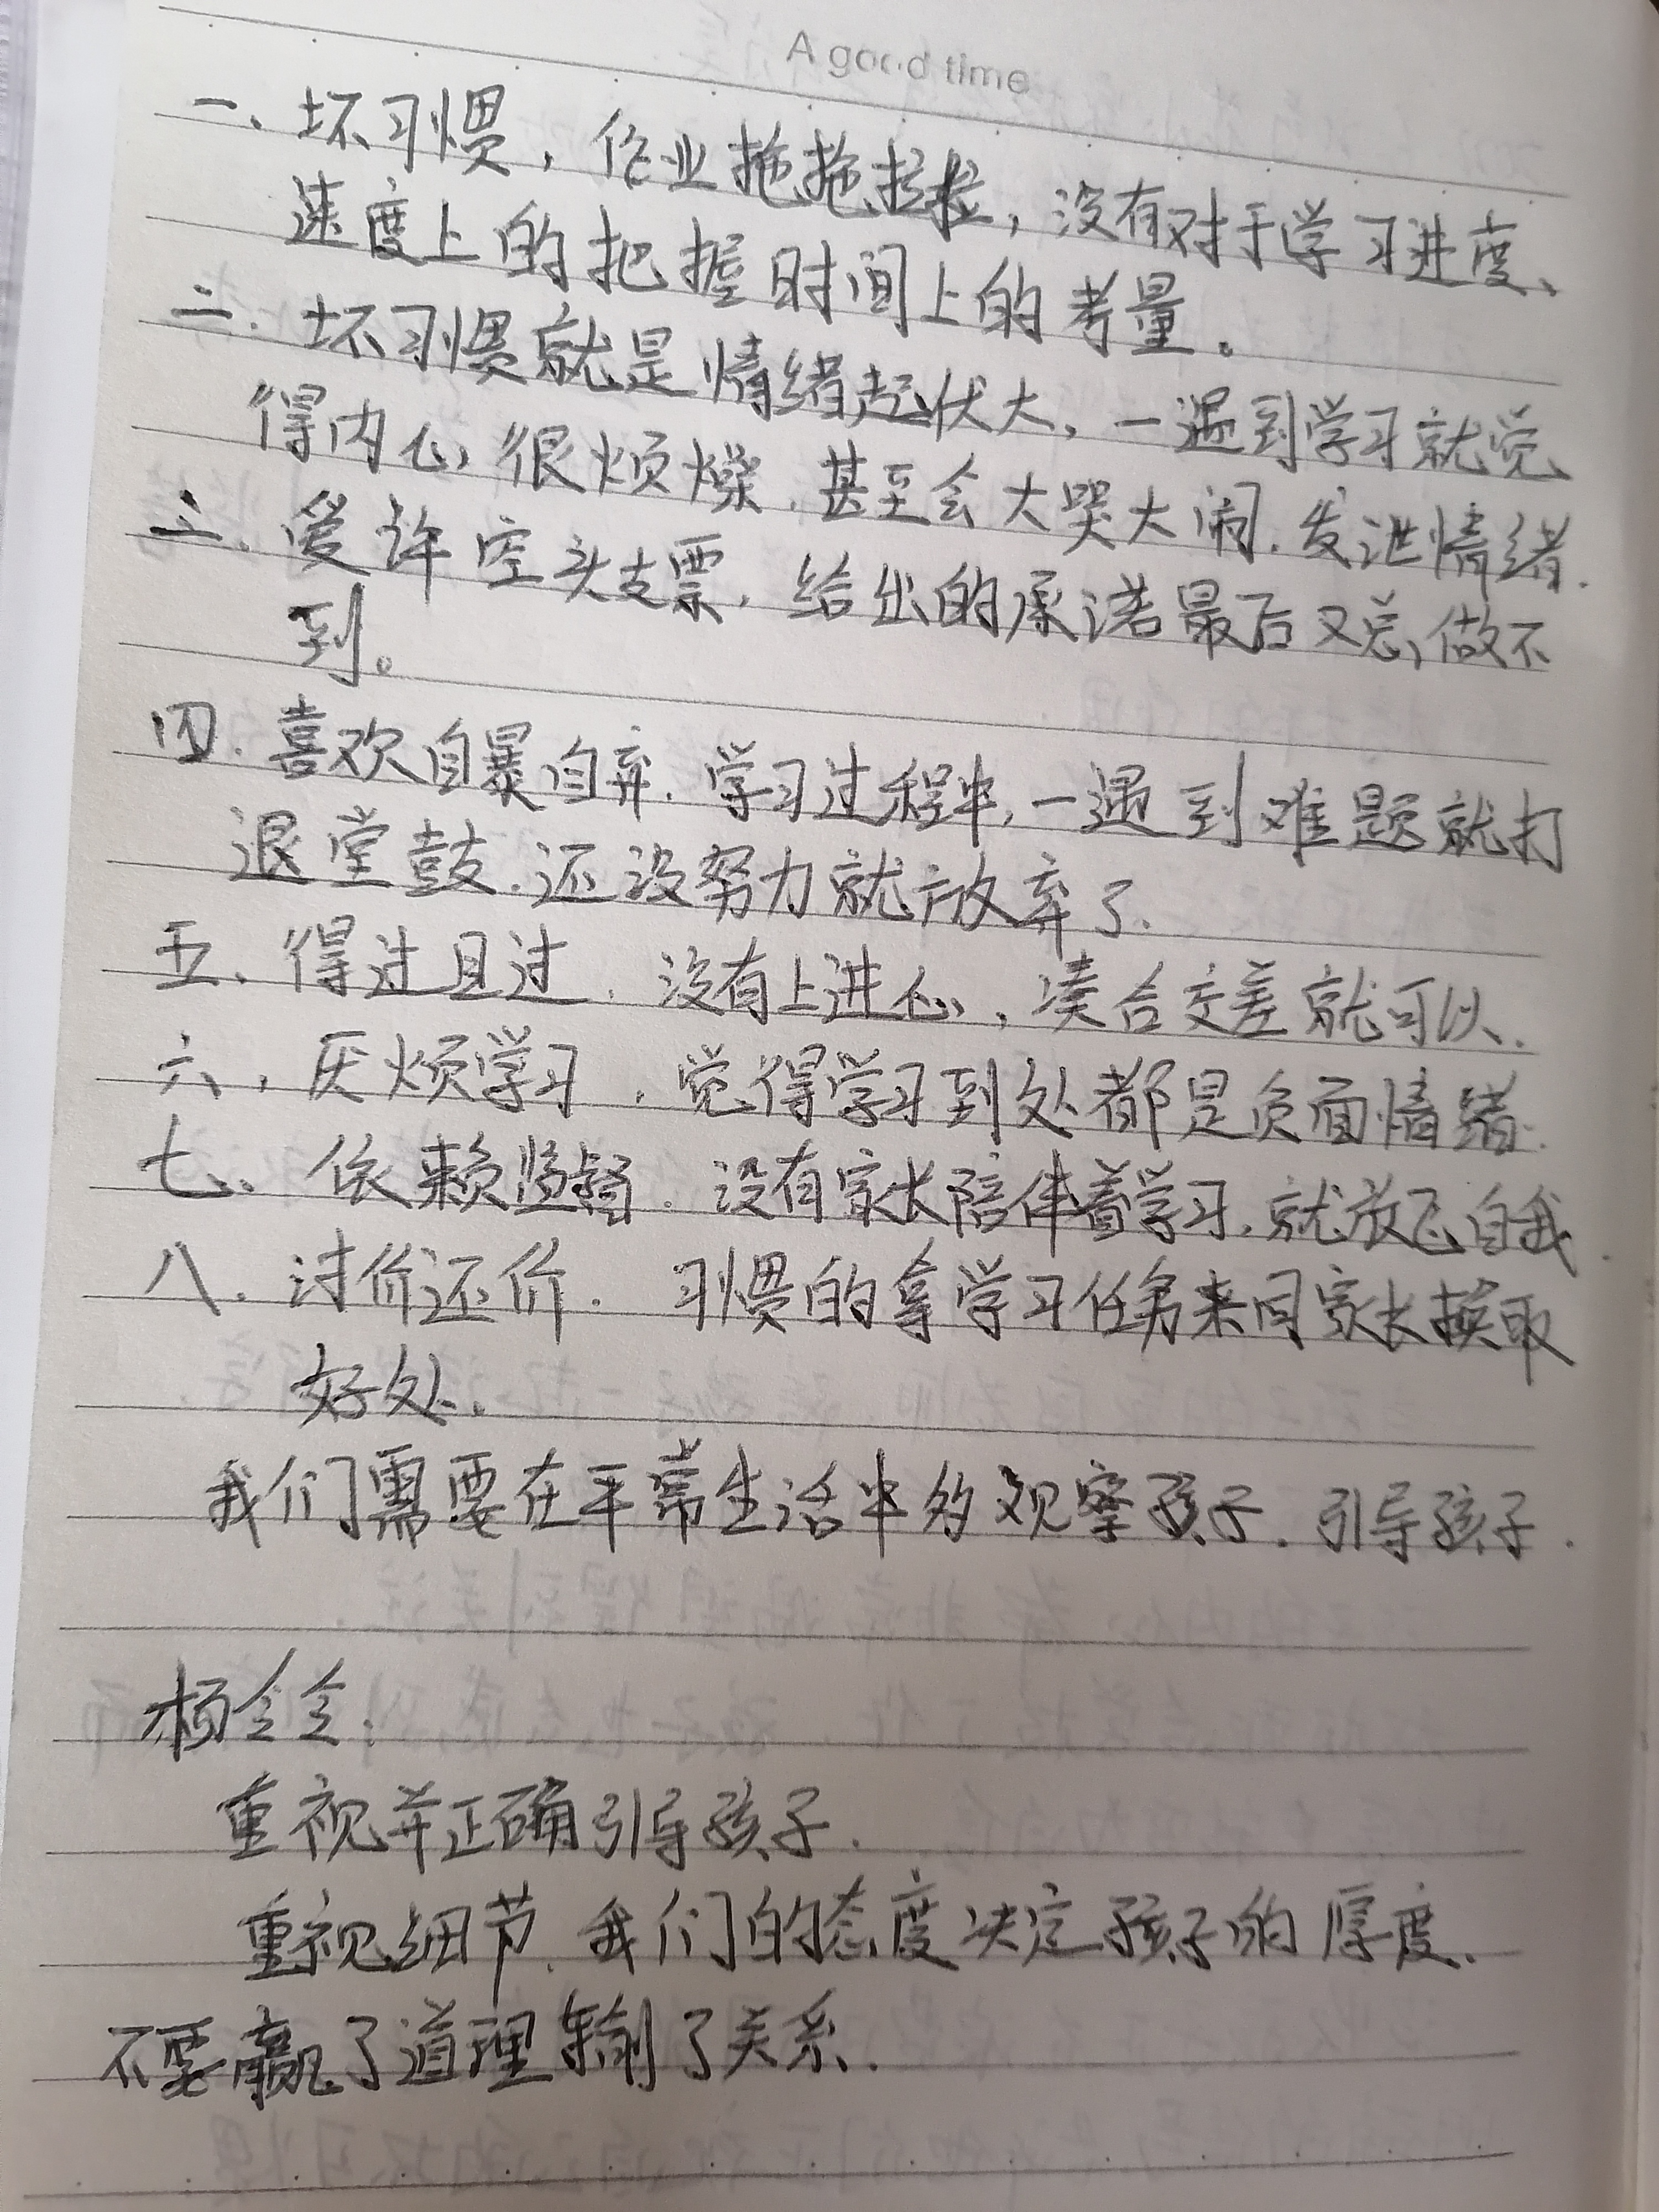 A good time
一、坏习惯，作业拖拖拉拉，没有对于学习进度、
速度上的把握时间上的考量。
二．坏习惯就是情绪起伏大，一遇到学习就觉
得内心很烦燥．甚至会大哭大闹．发泄情绪．
三．爱许空头支票，给出的承诺最后又总做不
到。
四．喜欢自暴自弃．学习过程中，一遇到难题就打
退堂鼓．还没努力就放弃了．
五、得过且过．没有上进心，凑合交差就可以．
六，厌烦学习，觉得学习到处都是负面情绪．
七、依赖监督．没有家长陪伴着学习．就放飞自我．
八．讨价还价．习惯的拿学习任务来同家长换取
好处．
我们需要在平常生活中多观察孩子．引导孩子．
杨念念：
重视并正确引导孩子．
重视细节．我们的态度决定孩子的厚度．
不要赢了道理输了关系．